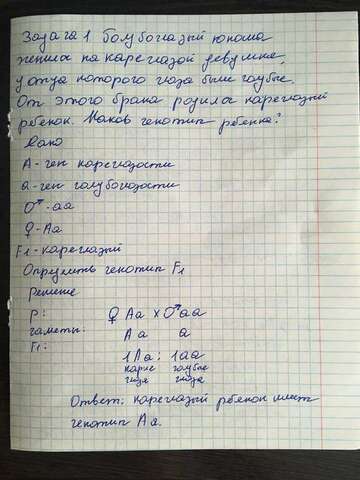 Задача 1 Голубоглазый юноша
женился на кареглазой девушке,
у отца которого глаза были голубые.
От этого брака родился кареглазый
ребенок. Каков генотип ребенка?
Дано
А-ген кареглазости
а-ген голубоглазости
♂-аа
♀-Аа
F1-кареглазый
Опрделить генотип F1
Решение
Р: ♀ Аа х ♂ аа
гаметы: А а а
F1: 1Аа : 1аа
карие голубые
глаза глаза
Ответ: кареглазый ребенок имеет
генотип Аа.